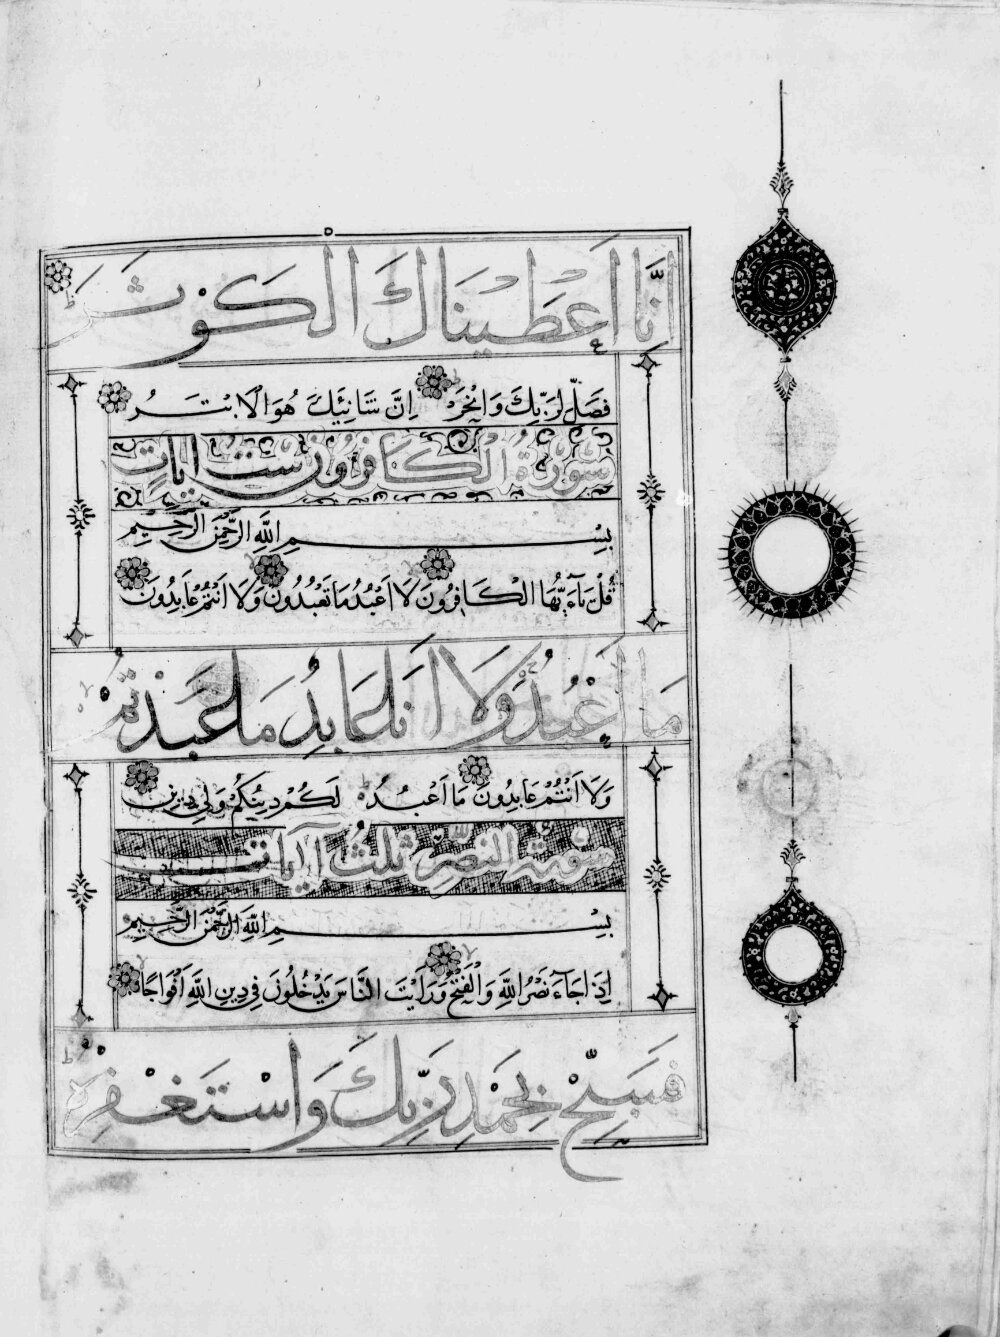 إِنَّا أَعْطَيْنَاكَ الْكَوْثَرَ
فَصَلِّ لِرَبِّكَ وَانْحَرْ إِنَّ شَانِئَكَ هُوَ الْأَبْتَرُ
سُورَةُ الْكَافِرُونَ سِتُّ آيَاتٍ
بِسْمِ اللَّهِ الرَّحْمَنِ الرَّحِيمِ
قُلْ يَاأَيُّهَا الْكَافِرُونَ لَا أَعْبُدُ مَا تَعْبُدُونَ وَلَا أَنْتُمْ عَابِدُونَ
مَا أَعْبُدُ وَلَا أَنَا عَابِدٌ مَا عَبَدْتُمْ
وَلَا أَنْتُمْ عَابِدُونَ مَا أَعْبُدُ لَكُمْ دِينُكُمْ وَلِيَ دِينِ
سُورَةُ النَّصْرِ ثَلَاثُ آيَاتٍ
بِسْمِ اللَّهِ الرَّحْمَنِ الرَّحِيمِ
إِذَا جَاءَ نَصْرُ اللَّهِ وَالْفَتْحُ وَرَأَيْتَ النَّاسَ يَدْخُلُونَ فِي دِينِ اللَّهِ أَفْوَاجًا
فَسَبِّحْ بِحَمْدِ رَبِّكَ وَاسْتَغْفِرْهُ